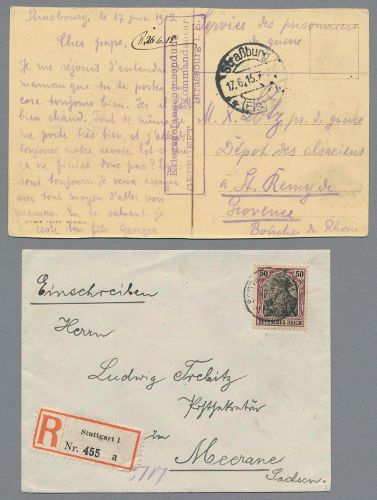 Strasbourg, le 17 juin 1915.
Cher papa,
Je me réjouis d'entendre
maman que tu te portes
core toujours bien. Ici il
bien chaud. Tout de même
me porte très bien, et j'att
toujours notre revoir. Est-ce
ça ne finira donc pas?
sons toujours. Je veux essayer
avec tout moyen d'aller voir
maman. En te saluant je
reste ton fils Georges
Kriegsgefangenensendung
Kommandantur
Strassburg i. E.
GEPRÜFT
Service des prisonniers
de guerre
Straßburg
17.6.15.
(Els)
M. X. Lotz, pris. de guerre
Dépôt des alsaciens
à St. Remy de
Provence
Bouches du Rhône
50 50
DEUTSCHES REICH
Einschreiben
Herrn
Ludwig Trebitz
Postsekretär
in
Meerane
Sachsen.
R
Stuttgart 1
Nr. 455 a